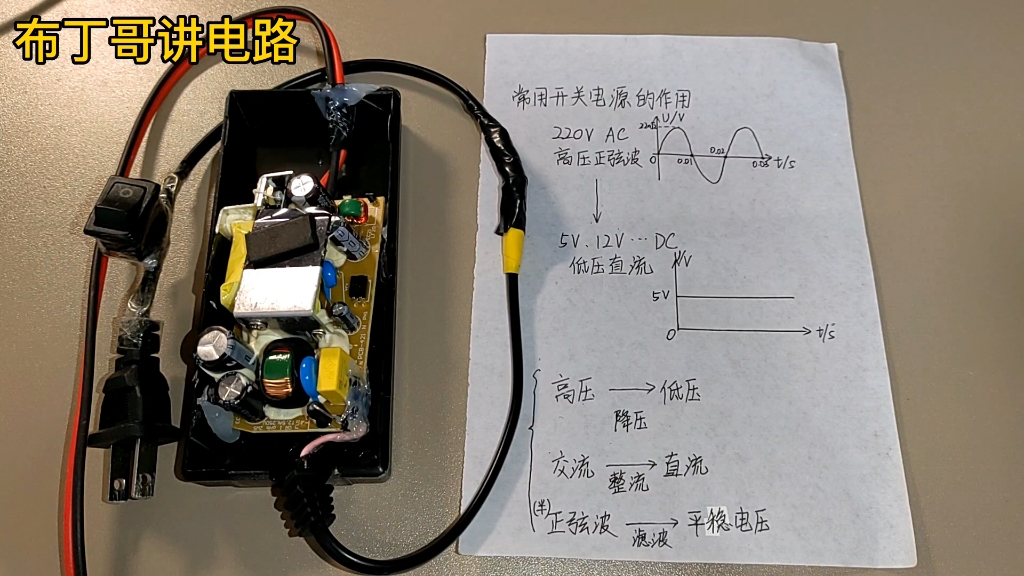 布丁哥讲电路
常用开关电源的作用
220V AC
高压正弦波
U/V
220
0
0.01
0.02
0.03
t/s
5V.12V…DC
低压直流
/V
5V
0
t/s
高压 → 低压
降压
交流 → 直流
整流
(半)正弦波 → 平稳电压
滤波